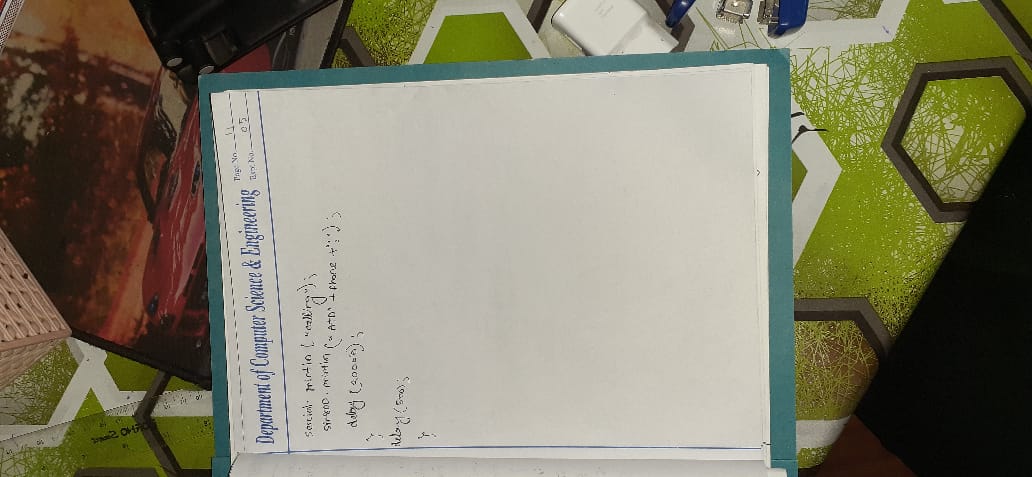 Department of Computer Science & Engineering
Page No. 11
Expt. No. 05
serial. println ("calling");
sim800. println ("ATD" + phone + ";");
delay (20000);
}
delay (500);
}